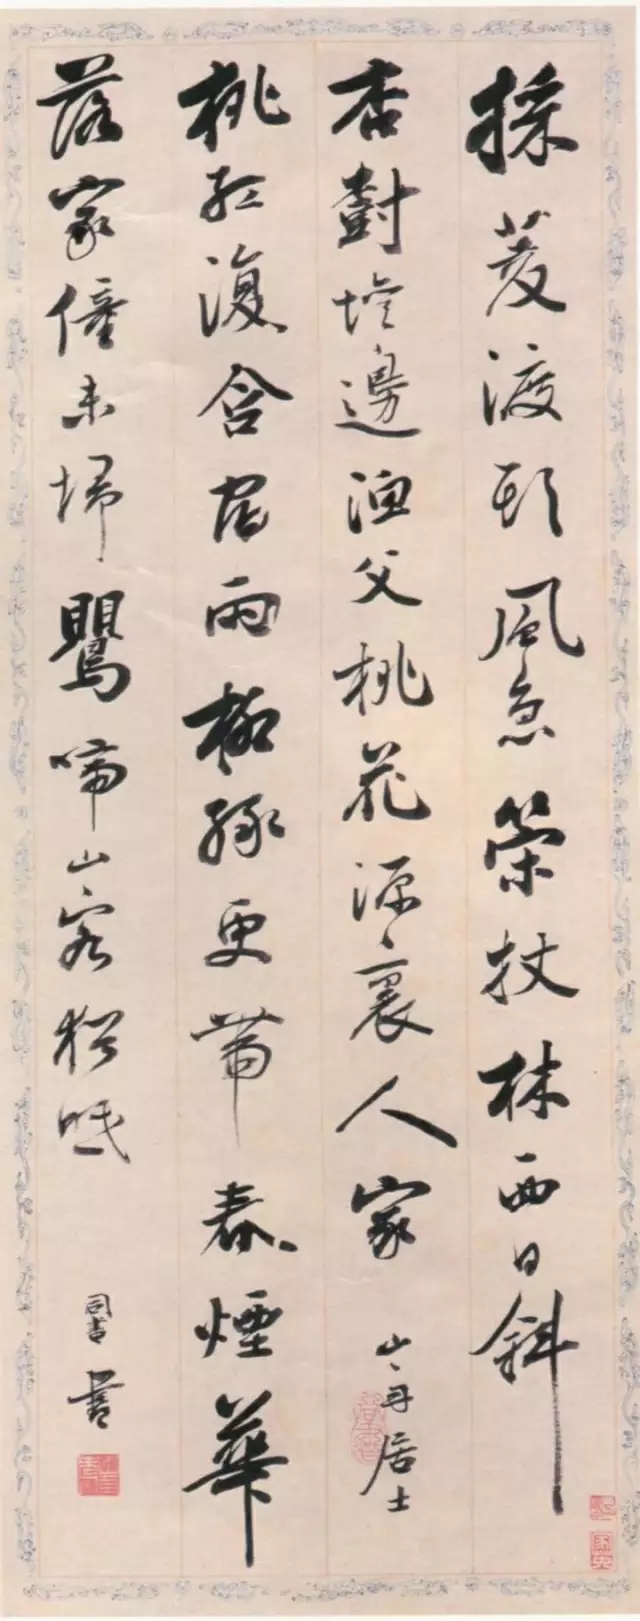 採菱渡頭風急策杖林西日斜
杏樹壇邊漁父桃花源裏人家 山舟居士
桃紅復含宿雨柳綠更帶春煙華
落家僮未埽鸎啼山客猶眠 同書書